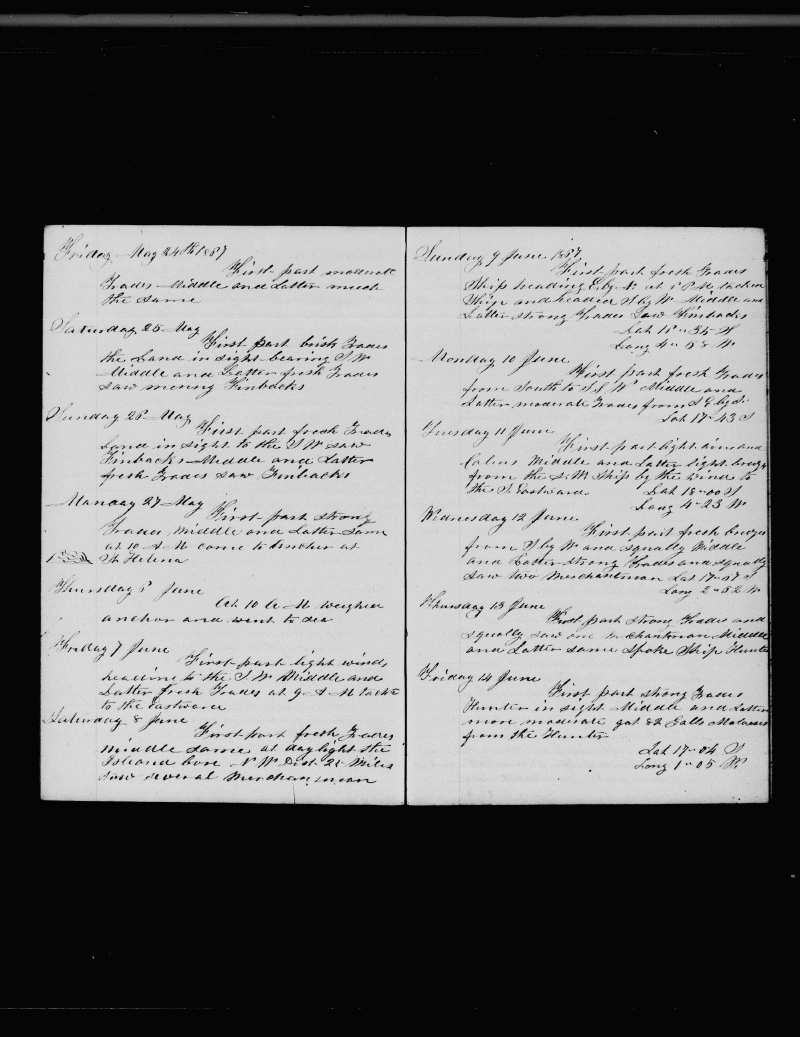 Friday May 24th 1867
First part moderate
Trades Middle and Latter much
the same
Saturday 25 May
First part brisk Trades
the Land in sight bearing S W
Middle and Latter fresh Trades
saw meny Finbacks
Sunday 26 May
First part fresh Trades
Land in sight to the S W saw
Finbacks Middle and Latter
fresh Trades saw Finbacks
Manday 27 May
First part strong
Trades, middle and Latter same
at 10 A M come to Anchor at
St Helena
Thursday 6 June
At 10 A M weighed
anchor and went to sea
Friday 7 June
First part light winds
heading to the S W Middle and
Latter fresh Trades at 9 A M tackt
to the Eastward
Saturday 8 June
First part fresh Trades
middle same at daylight the
Island bore N W Dist 25 Miles
saw several merchantman
Sunday 9 June 1867
First part fresh Trades
Ship heading E by N at 5 P M tacked
Ship and headed S by W Middle and
Latter strong Trades Saw Finbacks
Lat 35 S
Long 4 58 W
Monday 10 June
First part fresh Trades
from South to S S W Middle and
Latter moderate Trades from S E by S
Lat 17-43 S
Tuesday 11 June
First part light airs and
Calms Middle and Latter light breezes
from the S. W Ship by the wind to
the S. Eastward Lat 18-00 S
Long 4-23 W
Wednesday 12 June
First part fresh breezes
from S by W and squally Middle
and Latter strong Trades and squally
saw two Merchantman Lat 17-57 S
Long 2-52 W
Thursday 13 June
First part strong Trades and
squally saw one merchantman Middle
and Latter same Spoke Ship Hunter
Friday 14 June
First part strong Trades
Hunter in sight Middle and Latter
more moderate got 82 Galls Molasses
from the Hunter
Lat 17-04 S
Long 1-05 W